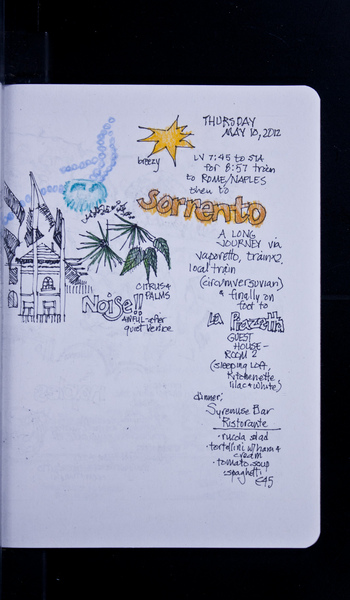 THURSDAY
MAY 10, 2012
breezy
LV 7:45 to STA
for 8:57 train
to ROME/NAPLES
then to
sorrento
A LONG
JOURNEY via
vaporetto, train x2
local train
(circumversuvian)
& finally on
foot to
La Piazzetta
GUEST
HOUSE-
ROOM 2
(sleeping loft,
kitchenette
lilac & white)
CITRUS &
PALMS
Noise!!
AWFUL after
quiet Venice
dinner:
Syrenuse Bar
Ristorante
· rucola salad
· tortellini w/ham &
cream
· tomato soup
spaghetti
€45